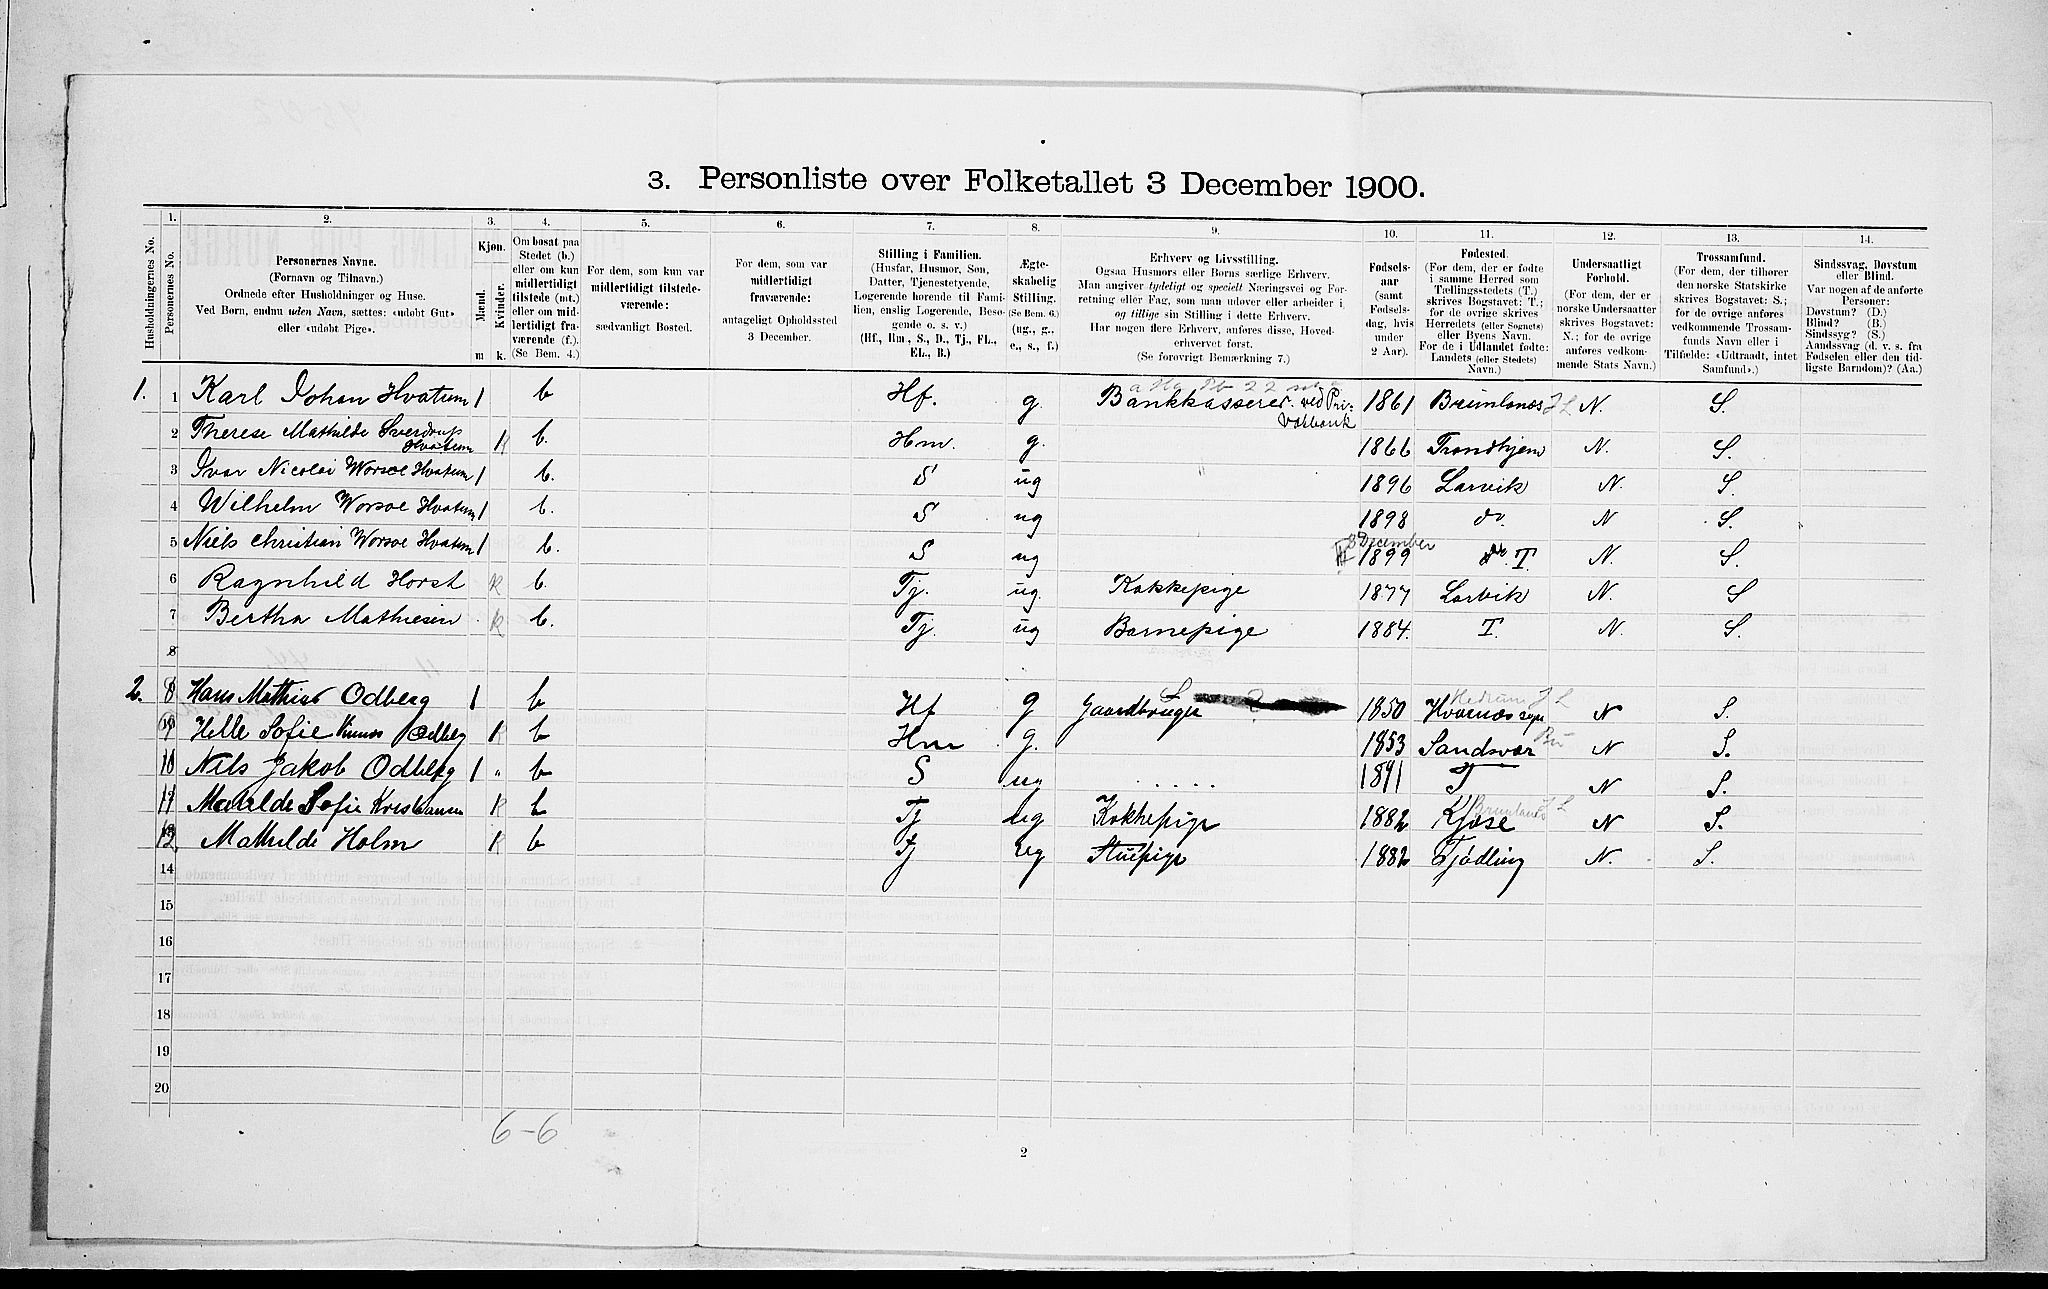 3. Personliste over Folketallet 3 December 1900.
Husholdningernes No.
1.
Personernes No.
2.
Personernes Navne.
(Fornavn og Tilnavn.)
Ordnede efter Husholdninger og Huse.
Ved Børn, endnu uden Navn, sættes: «udøbt Gut»
eller «udøbt Pige».
3.
Kjøn.
Mænd.
Kvinder.
m k.
4.
Om bosat paa
Stedet (b.)
eller om kun
midlertidigt
tilstede (mt.)
eller om mid-
lertidigt fra-
værende (f.).
(Se Bem. 4.)
5.
For dem, som kun var
midlertidigt tilstede-
værende:
sædvanligt Bosted.
6.
For dem, som var
midlertidigt
fraværende:
antageligt Opholdssted
3 December.
7.
Stilling i Familien.
(Husfar, Husmor, Søn,
Datter, Tjenestetyende,
Logerende hørende til Fami-
lien, enslig Logerende, Besø-
gende o. s. v.)
(Hf., Hm., S., D., Tj., FL.,
EL., B.)
8.
Ægte-
skabelig
Stilling.
(Se Bem. 6.)
(ug., g.,
e., s., f.)
9.
Erhverv og Livsstilling.
Ogsaa Husmors eller Børns særlige Erhverv.
Man angiver tydeligt og specielt Næringsvei og For-
retning eller Fag, som man udøver eller arbeider i,
og tillige sin Stilling i dette Erhverv.
Har nogen flere Erhverv, anføres disse, Hoved-
erhvervet først.
(Se forøvrigt Bemærkning 7.)
10.
Fødsels-
aar
(samt
Fødsels-
dag, hvis
under
2 Aar).
11.
Fødested.
(For dem, der er fødte
i samme Herred som
Tællingsstedets (T.)
skrives Bogstavet: T.;
for de øvrige skrives
Herredets (eller Sognets)
eller Byens Navn.
For de i Udlandet fødte:
Landets (eller Stedets)
Navn.)
12.
Undersaatligt
Forhold.
(For dem, der er
norske Undersaatter
skrives Bogstavet:
N.; for de øvrige
anføres vedkom-
mende Stats Navn.)
13.
Trossamfund.
(For dem, der tilhører
den norske Statskirke
skrives Bogstavet: S.;
for de øvrige anføres
vedkommende Trossam-
funds Navn eller i
Tilfælde: «Udtraadt, intet
Samfund».)
14.
Sindssvag, Døvstum
eller Blind.
Var nogen af de anførte
Personer:
Døvstum? (D.)
Blind? (B.)
Sindssyg? (S.)
Aandssvag (d. v. s. fra
Fødselen eller den tid-
ligste Barndom)? (Aa.)
1. 1 Karl Johan Hvatum 1 b Hf. g. Bankkasserer ved Pri- 1861 Brunlanes J L N. S.
vatbank
2 Therese Mathilde Sverdrup
Hvatum K b. Hm. g. 1866 Trondhjem N. S.
3 Ivar Nicolai Worsøe Hvatum 1 b. S ug 1896 Larvik N. S.
4 Wilhelm Worsøe Hvatum 1 b. S ug 1898 do. N S.
5 Niels Christian Worsøe Hvatum 1 b. S ug 8 December 1899 T. N. S.
6 Ragnhild Horst k b. Tj. ug. Kokkepige 1877 Larvik N. S
7 Bertha Mathiesen k b. Tj. ug Barnepige 1884. T. N. S.
8
2. 8 Hans Mathias Odberg 1 b Hf g Gaardbruger 1850 Hvarnes sogn Hedrum J L N S.
9 Helle Sofie Odberg K b Hm g. 1853 Sandsvær Bu N S.
10 Nils Jakob Odberg 1 " b S ug 1891 T N S.
11 Sofie Kristiansen K b Tj ug Kokkepige 1882 Kjose Brunlanes J L N S.
12 Mathilde Holm K b Tj ug Stuepige 1882 Tjødling N. S.
14
15
16
17
18
19
20
6-6
2